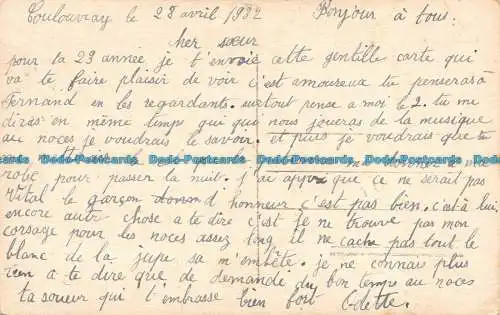 Coulouvray le 28 avril 1932 Bonjour à tous.
cher sœur
pour ta 29 année je t'envoie cette gentille carte qui
va te faire plaisir de voir c'est amoureux tu penseras à
Fernand en les regardants. surtout pense a moi le 2. tu me
diras en même temps qui qui nous joueras de la musique
au noces je voudrais le savoir et puis je voudrais que tu
robe pour passer la nuit. j'ai appris que ce ne serait pas
Vital le garçon d'honneur c'est pas bien. c'est à lui.
encore autre chose a te dire c'est je ne trouve pas mon
corsage pour les noces assez long il ne cache pas tout le
blanc de la jupe sa m'embête. je ne connais plus
rien a te dire que de demande du bon temps au noces
ta soeur qui t'embrasse bien fort Odette.
Dedo-Postcards Dedo-Postcards Dedo-Postcards Dedo-Postcards